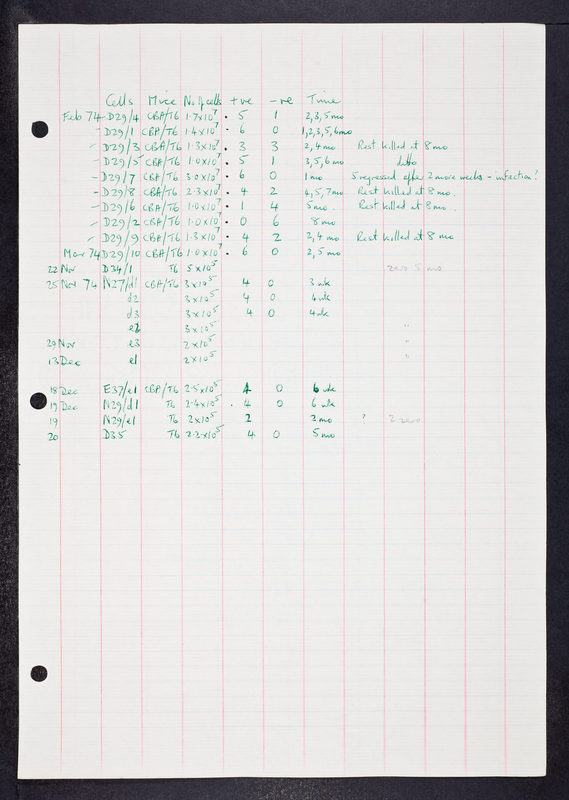 Cells Mice No of cells +ve -ve Time
Feb 74 - D29/4 CBA/T6 1.7×10⁷ • 5 1 2,3,5mo
- D29/1 CBA/T6 1.4×10⁷ • 6 0 1,2,3,5,6mo
- D29/3 CBA/T6 1.3×10⁷ • 3 3 2,4mo Rest killed at 8mo
- D29/5 CBA/T6 1.0×10⁷ • 5 1 3,5,6mo ditto
- D29/7 CBA/T6 3.0×10⁷ • 6 0 1mo 5 regressed after 2 more weeks - infection?
- D29/8 CBA/T6 2.3×10⁷ • 4 2 4,5,7mo Rest killed at 8mo.
- D29/6 CBA/T6 1.0×10⁷ • 1 4 5mo. Rest killed at 8mo.
- D29/2 CBA/T6 1.0×10⁷ • 0 6 8mo
- D29/9 CBA/T6 1.3×10⁷ • 4 2 2,4mo Rest killed at 8mo
Mar 74 D29/10 CBA/T6 1.0×10⁷ • 6 0 2,5mo
22 Nov D34/1 T6 5×10⁵ zero 5mo
25 Nov 74 N27/d1 CBA/T6 3×10⁵ 4 0 3wk
d2 3×10⁵ 4 0 4wk
d3 3×10⁵ 4 0 4wk
e2 3×10⁵ "
29 Nov e3 2×10⁵ "
13 Dec e1 2×10⁵ "
18 Dec E37/e1 CBA/T6 2.5×10⁵ 4 0 6wk
19 Dec N29/d1 T6 2.4×10⁵ . 4 0 6wk
19 N29/e1 T6 2×10⁵ 2 2mo ? 2 zero
20 D35 T6 2.2×10⁵ 4 0 5mo